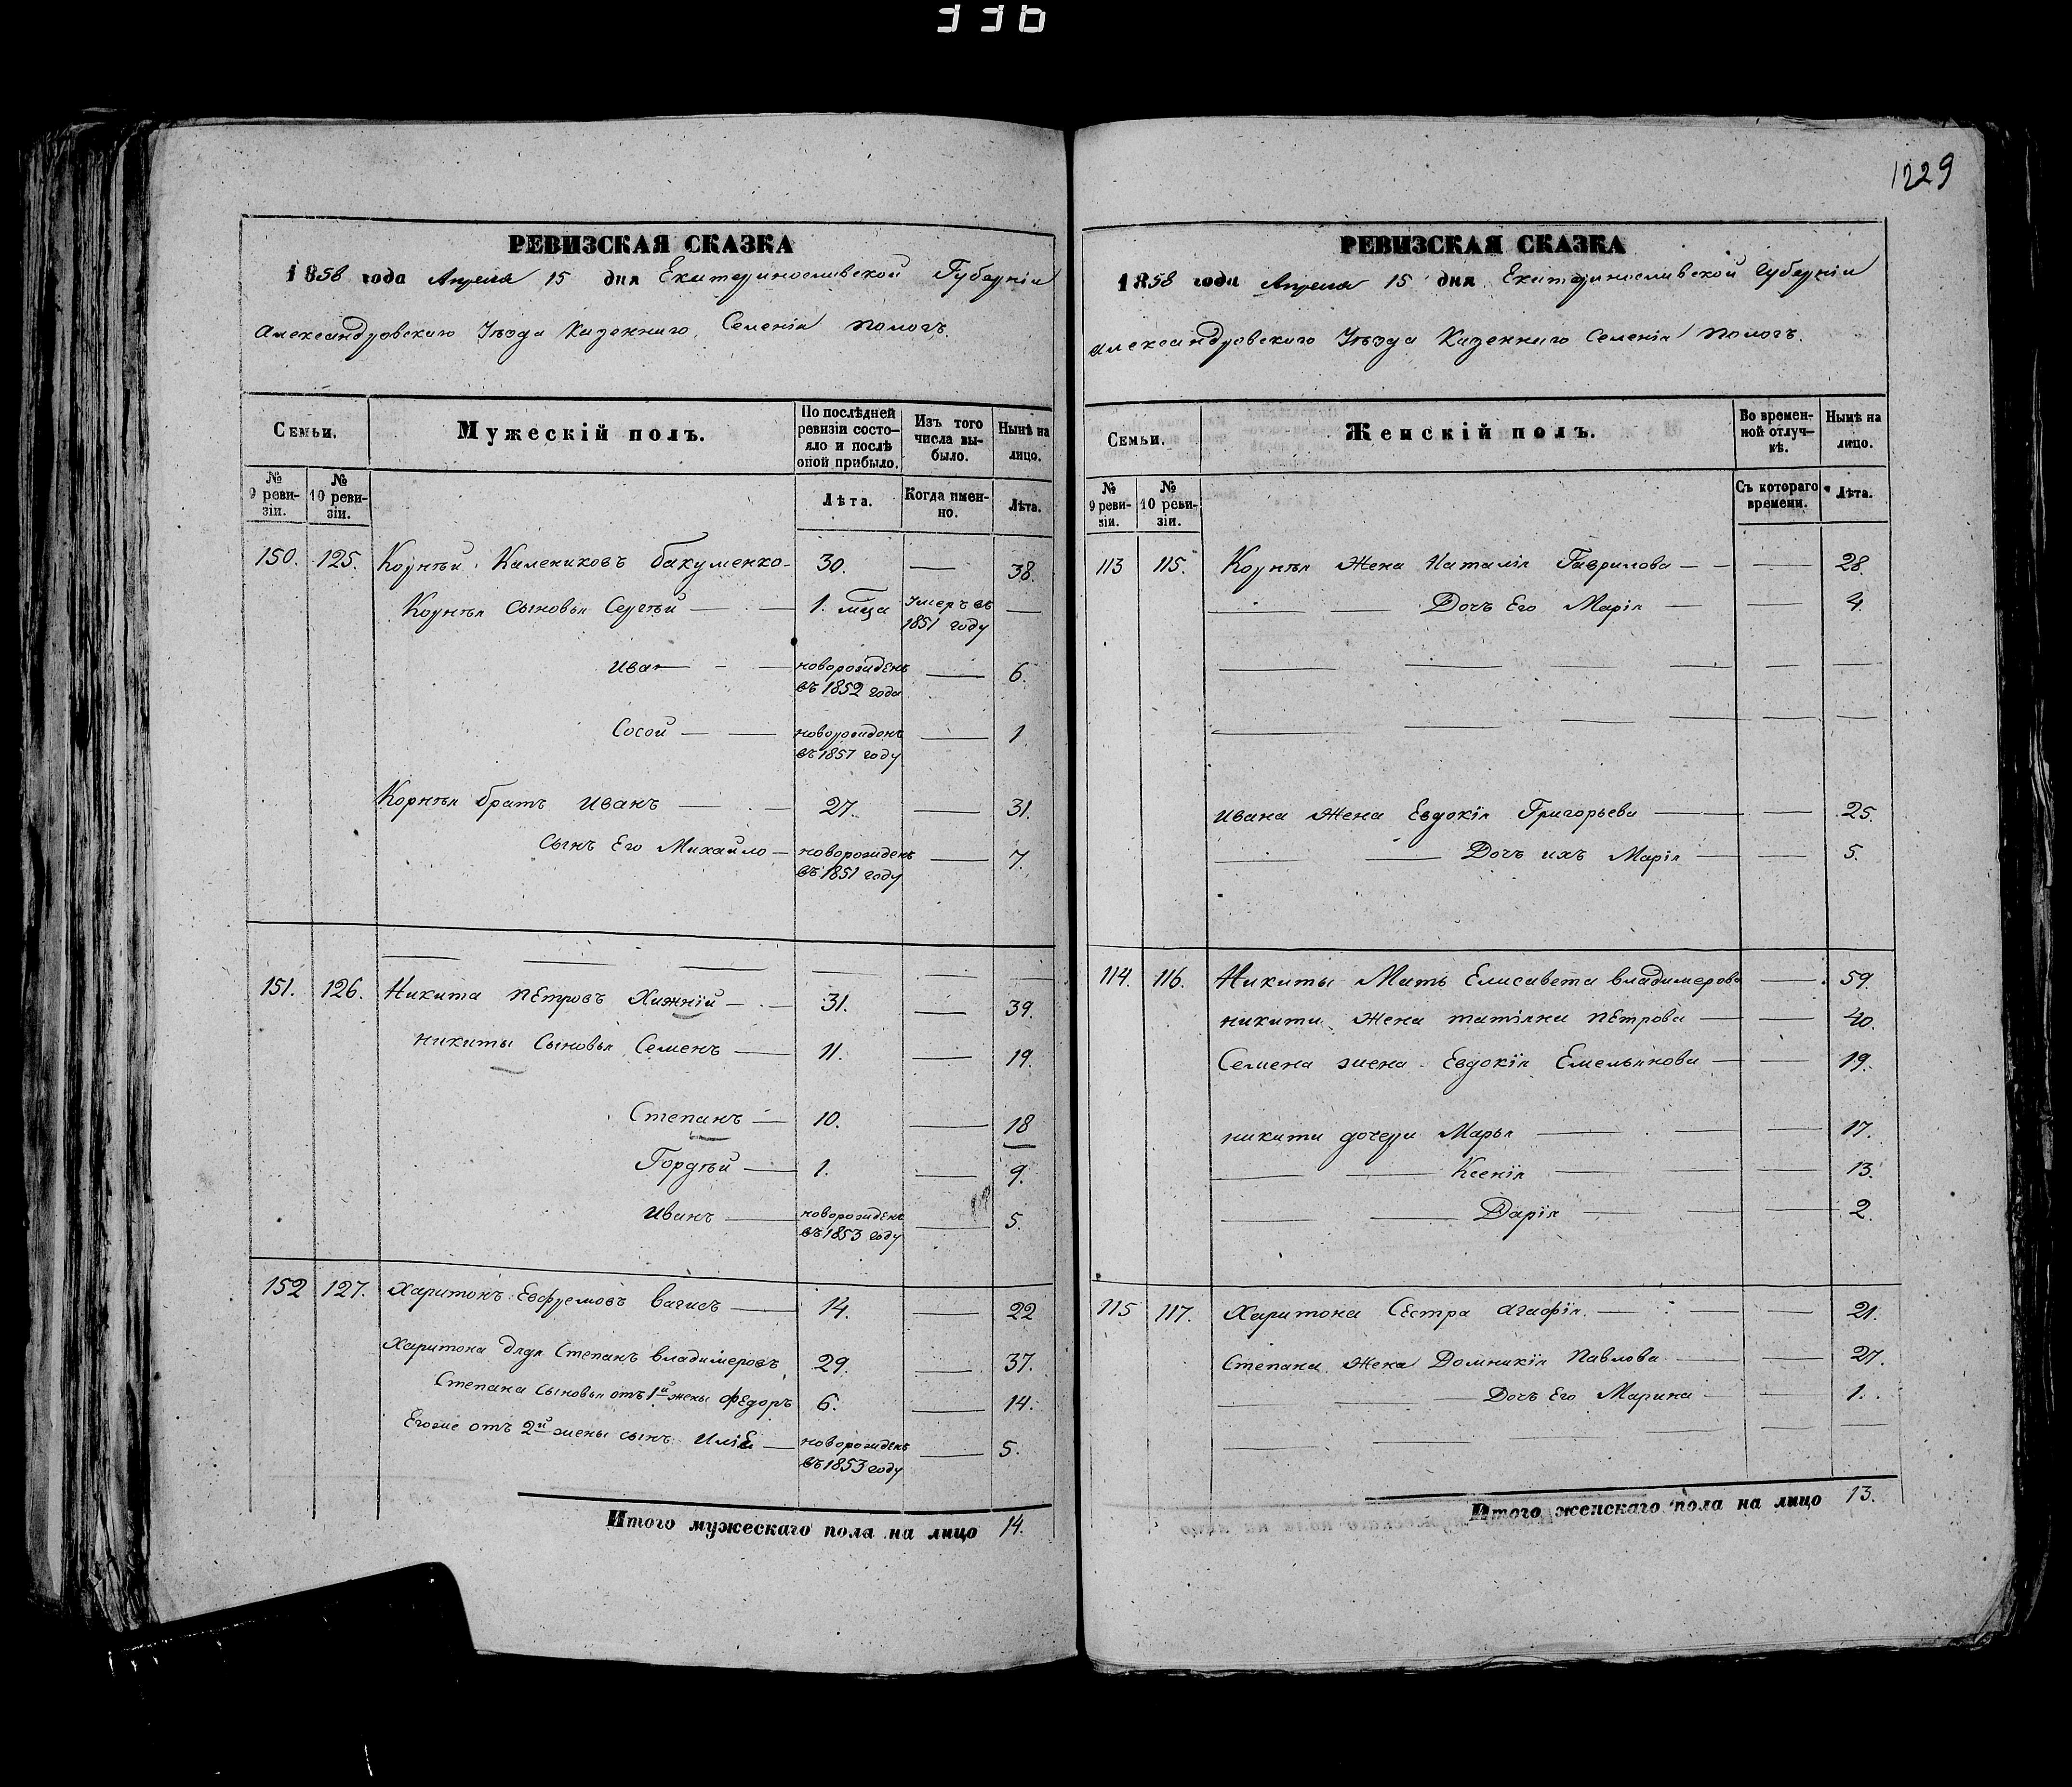 336
1229
РЕВИЗСКАЯ СКАЗКА
1858 года Апреля 15 дня Екатеринославской Губернiи
Александровскаго Уѣзда Казеннаго Селенiя Пологъ.
Семьи.
Мужескiй полъ.
По послѣдней ревизiи состояло и послѣ оной прибыло.
Изъ того числа выбыло.
Нынѣ на лицо.
№ 9 ревизiи.
№ 10 ревизiи.
Лѣта.
Когда именно.
Лѣта.
150. 125. Корнѣй Калениковъ Бакуменко 30. — 38.
Корнѣя сыновья Сергѣй — 1. мца Умеръ въ 1851 году —
Иван — новорожденъ въ 1852 года — 6.
Сосой — новорожденъ въ 1857 году — 1
Корнѣя братъ Иванъ — 27. — 31.
сынъ Его Михайло — новорожденъ въ 1851 году — 7.
151. 126. Никита Петровъ Хижнiй — 31. — 39.
Никиты Сыновья Семенъ — 11. — 19.
Степанъ — 10. — 18
Гордѣй — 1. — 9.
Иванъ — новорожденъ въ 1853 году — 5.
152 127. Харитонъ Евфремовъ — 14. — 22
Харитона дядя Степанъ Владимеровъ 29. — 37.
Степана сыновья отъ 1й жены Федоръ 6. — 14.
Егоже отъ 2й жены сынъ — новорожденъ въ 1853 году — 5.
Итого мужескаго пола на лицо 14.
РЕВИЗСКАЯ СКАЗКА
1858 года Апреля 15 дня Екатеринославской Губернiи
Александровскаго Уѣзда Казеннаго Селенiя Пологъ.
Семьи.
Женскiй полъ.
Во временной отлучкѣ.
Нынѣ на лицо.
№ 9 ревизiи.
№ 10 ревизiи.
Съ котораго времени.
Лѣта.
113 115. Корнѣя Жена Наталiя Гаврилова — — 28.
Дочь Его Марiя — — 4.
Ивана Жена Евдокiя Григорьева — — 25.
Дочь ихъ Марiя — — 5.
114. 116. Никиты Мать Елисавета Владимерова — 59.
Никиты Жена Татiяна Петрова — — 40.
Семена жена Евдокiя Емельянова — — 19.
Никиты дочери Марья — — 17.
Ксенiя — — 13.
Дарiя — — 2.
115 117. Харитона Сестра Агафiя — — 21.
Степана Жена Домникiя Павлова — — 27.
Дочь Его Марина — — 1.
Итого женскаго пола на лицо 13.